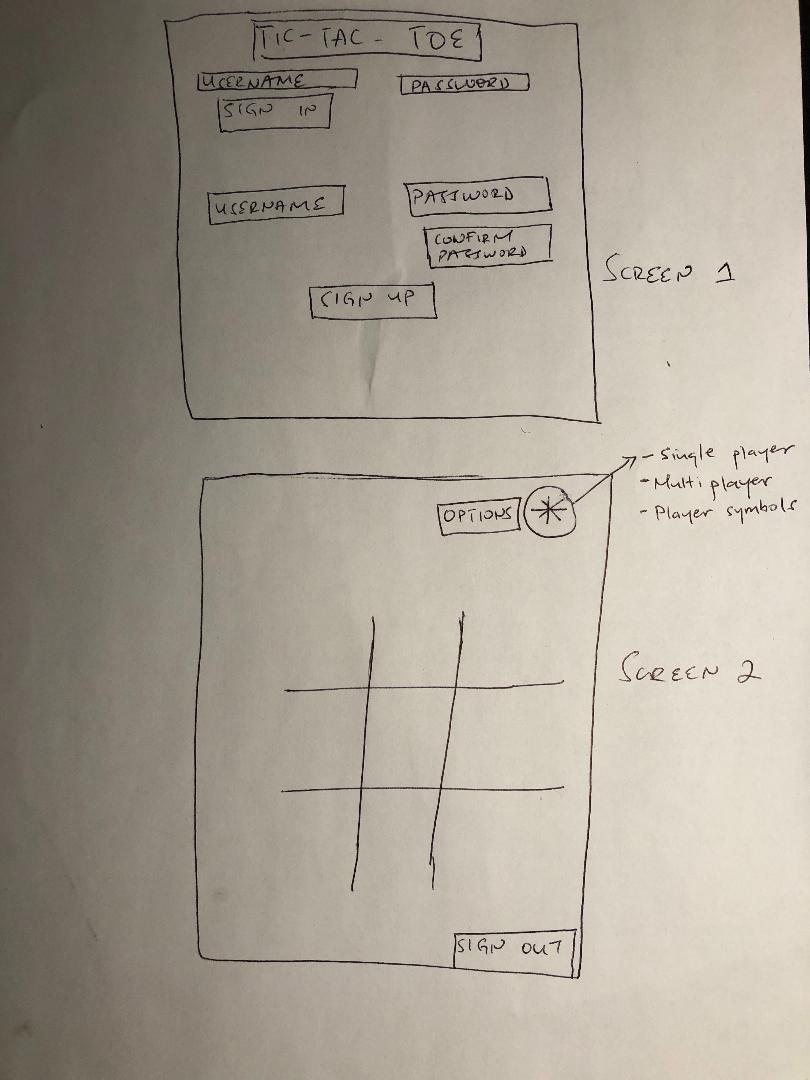 TIC-TAC-TOE
USERNAME PASSWORD
SIGN IN
USERNAME PASSWORD
CONFIRM
PASSWORD
SCREEN 1
SIGN UP
- Single player
- Multi player
- Player symbols
OPTIONS
SCREEN 2
SIGN OUT